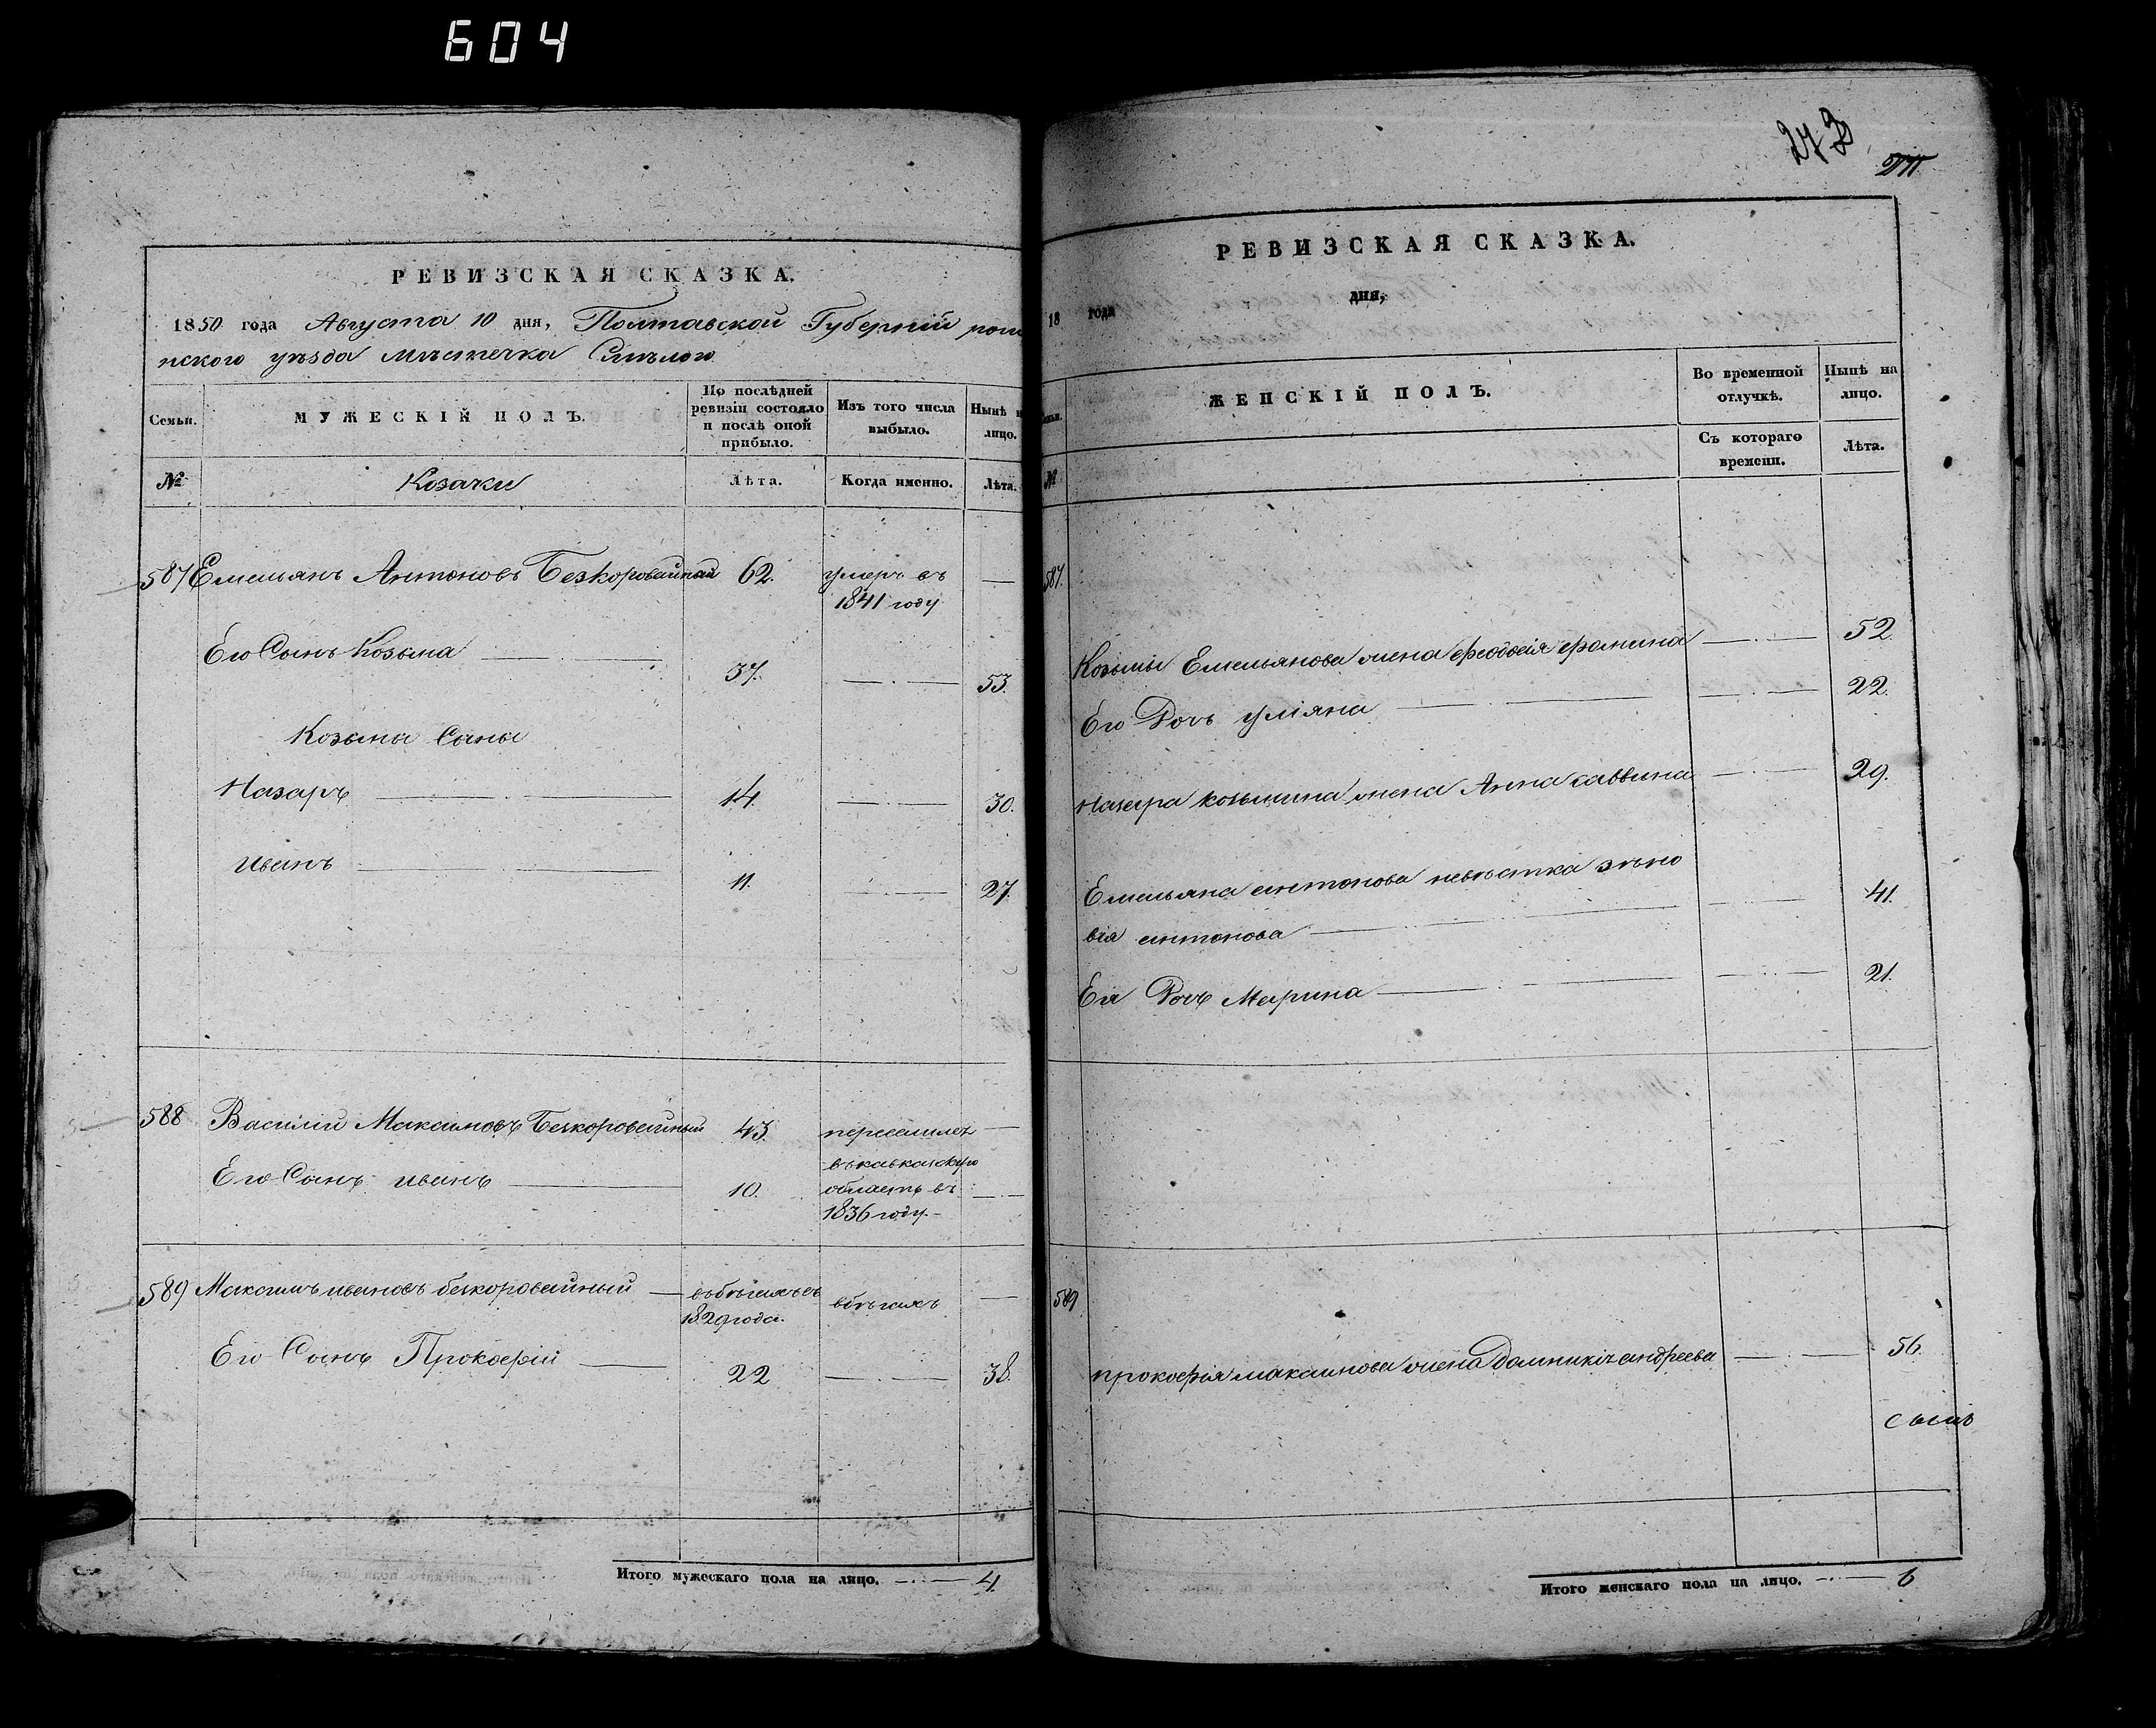 604
РЕВИЗСКАЯ СКАЗКА.
1850 года Августа 10 дня, Полтавской Губерніи
нского уѣзда мѣстечка Смѣлого
Семьи.
МУЖЕСКІЙ ПОЛЪ.
По послѣдней ревизіи состояло и послѣ оной прибыло.
Изъ того числа выбыло.
Нынѣ на лицо.
№
Козачки
Лѣта.
Когда именно.
Лѣта.
587 Емельянъ Антоновъ Безкоровайный 62. умеръ въ
1841 году
Его Сынъ Козьма 37. 53.
Козьма Сыны
Назаръ 14. 30.
Иванъ 11. 27.
588 Василій Максимовъ Безкоровайный 43
въ кавказскую
Его Сынъ иванъ 10. область въ
1836 году.
589 Максимъ ивановъ безкоровайный вбѣгахъ
1829 года.
Его Сынъ Прокофій 22 38.
Итого мужескаго пола на лицо. 4.
273
РЕВИЗСКАЯ СКАЗКА.
18 года дня,
ЖЕНСКІЙ ПОЛЪ.
Во временной отлучкѣ.
Нынѣ на лицо.
№
Съ котораго времени.
Лѣта.
587.
Козьмы Емельянова жена феодосія фомина 52.
Его Дочь уліяна 22.
Назара козьмина жена Анна саввина 29.
Емельяна антонова невѣстка зѣно
вія антонова 41.
Ея Дочь Марина 21.
589
прокофія максимова жена Домникія андреева 56.
Итого женскаго пола на лицо. 6